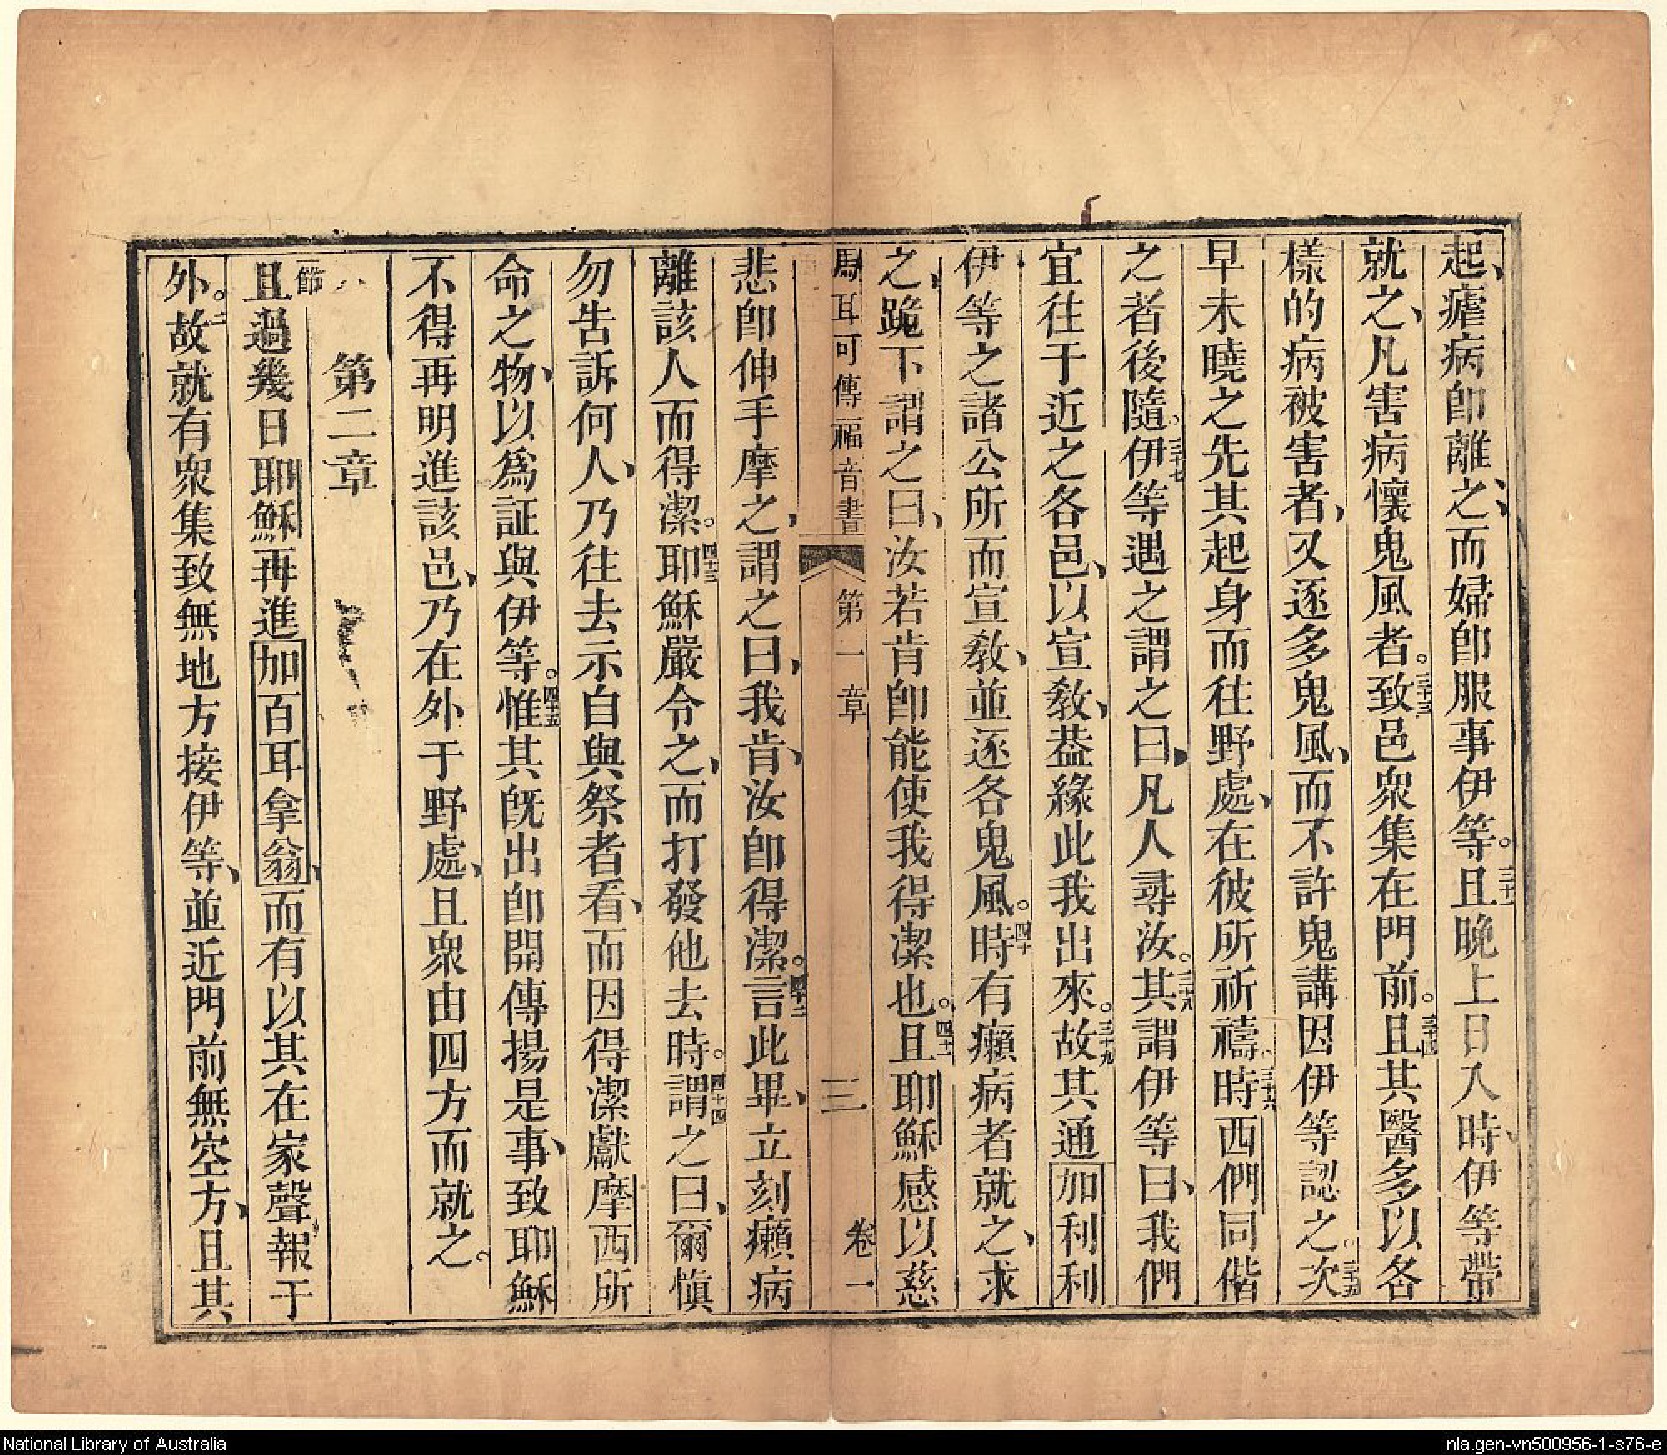 起、瘧病卽離之、而婦卽服事伊等。三十二且晚上日入時、伊等帶
就之、凡害病懷鬼風者。三十三致邑衆集在門前。三十四且其醫多以各
樣的病被害者、又逐多鬼風、而不許鬼講因伊等認之。三十五次
早未曉之先其起身而往野處、在彼所祈禱。三十六時西們同偕
之者後隨。三十七伊等遇之謂之曰、凡人尋汝。三十八其謂伊等曰、我們
宜往于近之各邑、以宣教、葢緣此我出來。三十九故其通加利利
伊等之諸公所而宣教、並逐各鬼風。四十時有癩病者就之、求
之、跪下謂之曰、汝若肯卽能使我得潔也。四十一且耶穌感以慈
馬耳可傳福音書 第一章 三 卷一
悲卽伸手摩之、謂之曰、我肯、汝卽得潔。四十二言此畢、立刻癩病
離該人而得潔。四十三耶穌嚴令之、而打發他去時。四十四謂之曰、爾愼
勿告訴何人、乃往去示自與祭者看、而因得潔獻摩西所
命之物、以爲証與伊等。四十五惟其旣出卽開傳揚是事、致耶穌
不得再明進該邑、乃在外于野處、且衆由四方而就之。
第二章
一節且過幾日耶穌再進加百耳拿翁、而有以其在家聲報于
外。二故就有衆集致無地方接伊等、並近門前無空方、且其
National Library of Australia
nla.gen-vn500956-1-s76-e